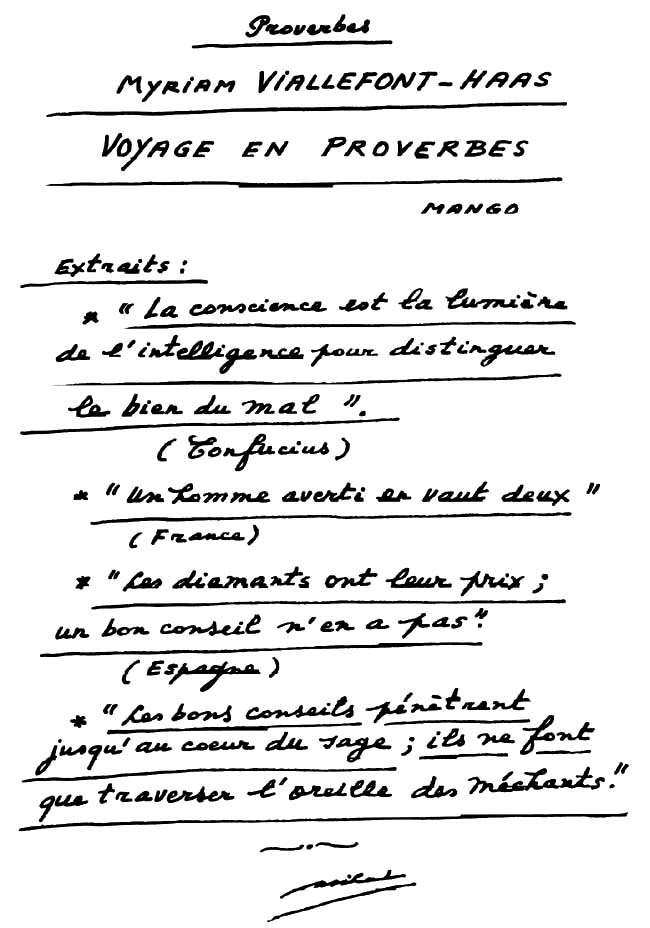 Proverbes
MYRIAM VIALLEFONT-HAAS
VOYAGE EN PROVERBES
MANGO
Extraits :
* " La conscience est la lumière
de l'intelligence pour distinguer
le bien du mal ".
( Confucius )
* " Un homme averti en vaut deux "
( France )
* " Les diamants ont leur prix ;
un bon conseil n'en a pas "
( Espagne )
* " Les bons conseils pénètrent
jusqu'au coeur du sage ; ils ne font
que traverser l'oreille des méchants. "